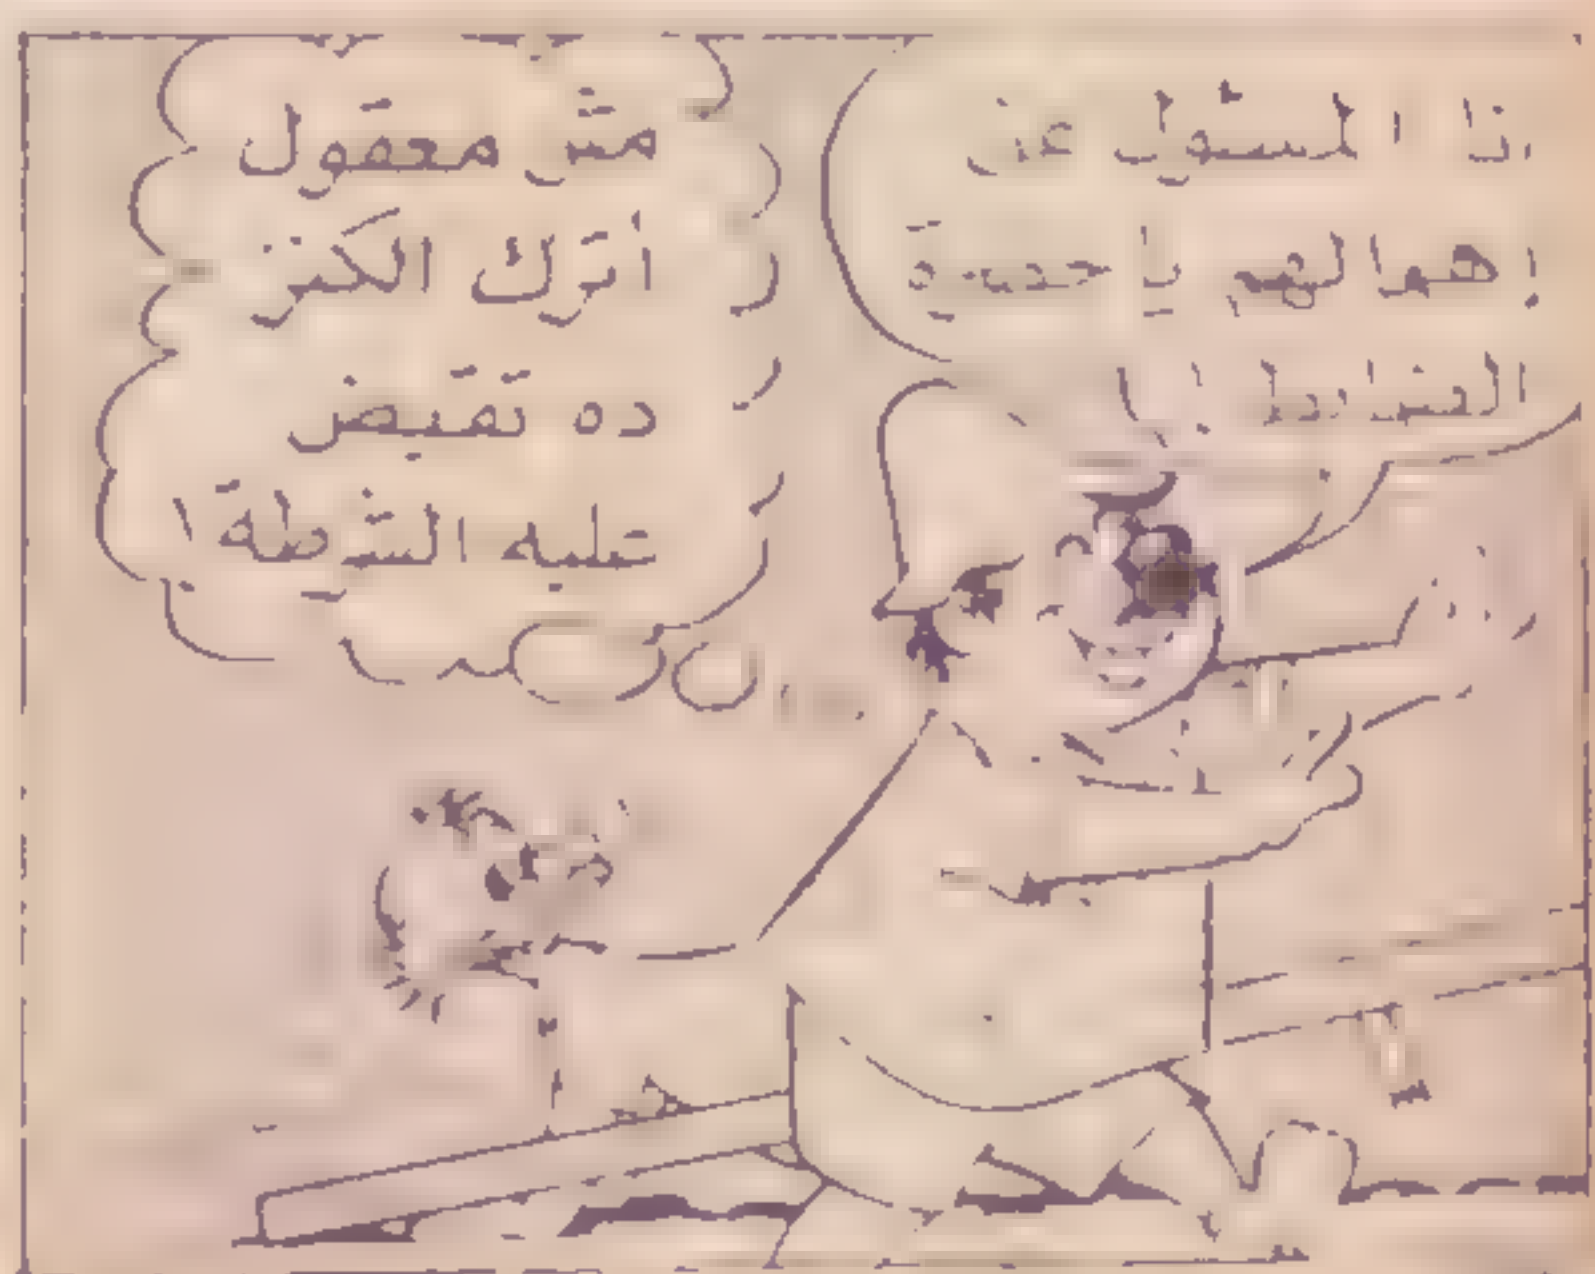 انا المسئول عن
اهمالهم يا حضرة
الضابط !
مش معقول
أترك الكنز
ده تقبض
عليه الشرطة !